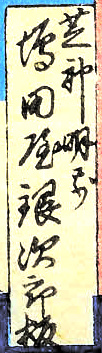 芝神明前
増田屋銀次郎板